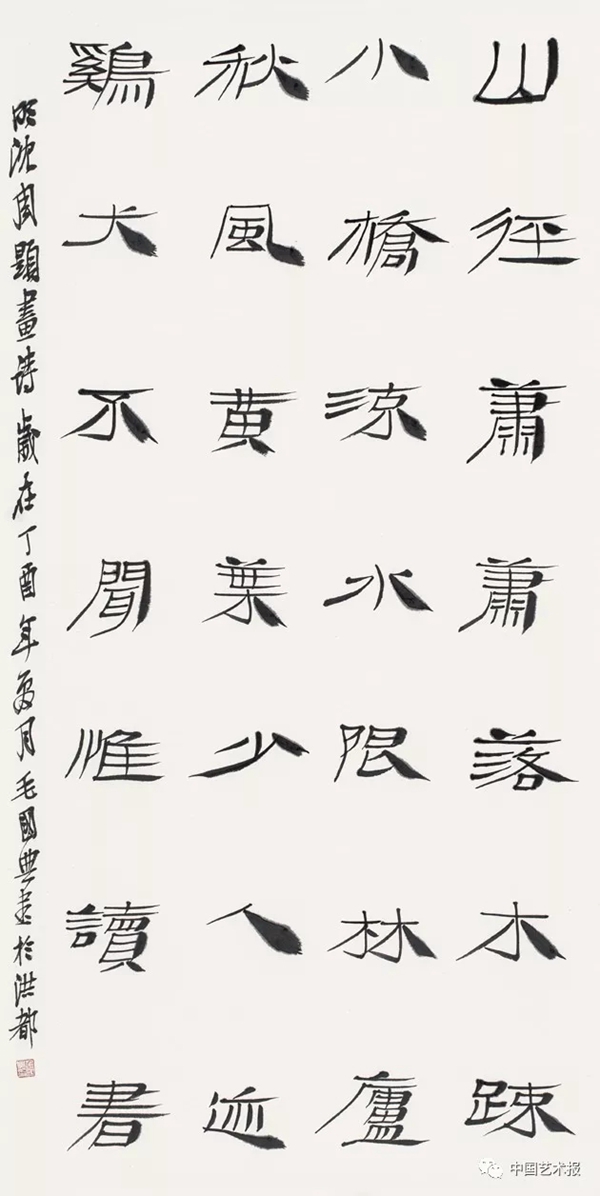 山徑蕭蕭落木疎
小橋流水限林廬
秋風黄葉少人迹
鷄犬不聞惟讀書
明沈周題畫詩歲在丁酉年夏月毛國典書於洪都
中国艺术报